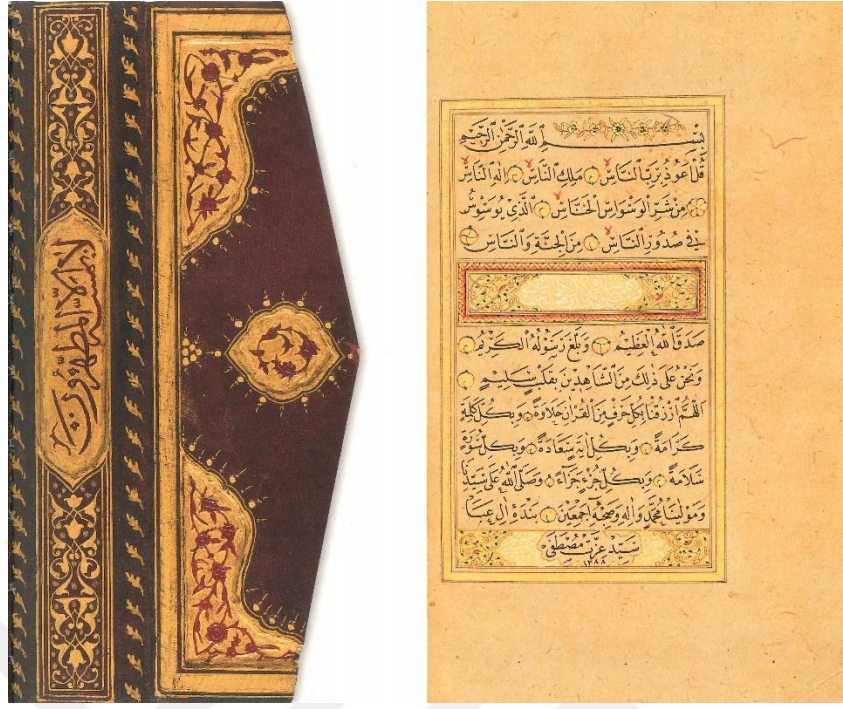 لا يمسه الا المطهرون
بِسْمِ اللّٰهِ الرَّحْمٰنِ الرَّحِيمِ
قُلْ اَعُوذُ بِرَبِّ النَّاسِ مَلِكِ النَّاسِ اِلٰهِ النَّاسِ
مِنْ شَرِّ الْوَسْوَاسِ الْخَنَّاسِ اَلَّذِى يُوَسْوِسُ
فِى صُدُورِ النَّاسِ مِنَ الْجِنَّةِ وَالنَّاسِ
صَدَقَ اللّٰهُ الْعَظِيمُ وَبَلَّغَ رَسُولُهُ الْكَرِيمُ
وَنَحْنُ عَلَى ذٰلِكَ مِنَ الشَّاهِدِينَ بِقَلْبٍ سَلِيمٍ
اَللّٰهُمَّ ارْزُقْنَا بِكُلِّ حَرْفٍ مِنَ الْقُرْاٰنِ حَلَاوَةً وَبِكُلِّ كَلِمَةٍ
كَرَامَةً وَبِكُلِّ اٰيَةٍ سَعَادَةً وَبِكُلِّ سُورَةٍ
سَلَامَةً وَبِكُلِّ جُزْءٍ جَزَاءً وَصَلَّى اللّٰهُ عَلَى سَيِّدِنَا
وَمَوْلٰينَا مُحَمَّدٍ وَاٰلِهِ وَصَحْبِهِ اَجْمَعِينَ بَنْدَهٔ اٰل عبا
سَيِّد عِزَّت مُصْطَفٰى
١٢٨٨